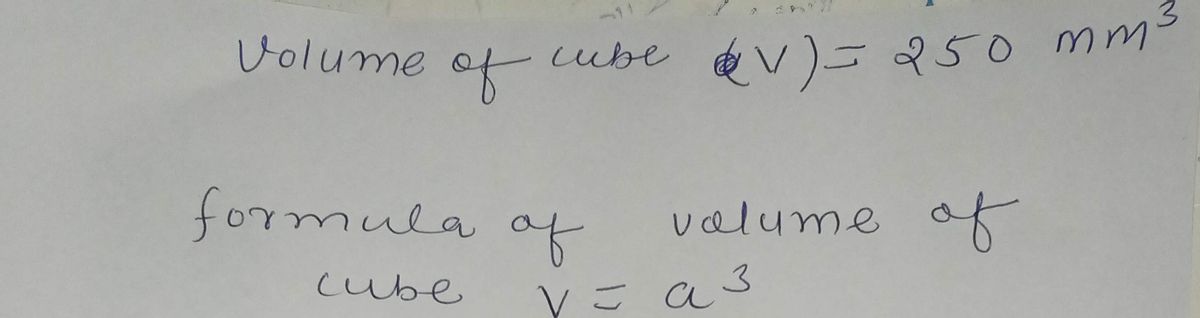 Volume of cube (V) = 250 mm³
formula of volume of
cube V = a³